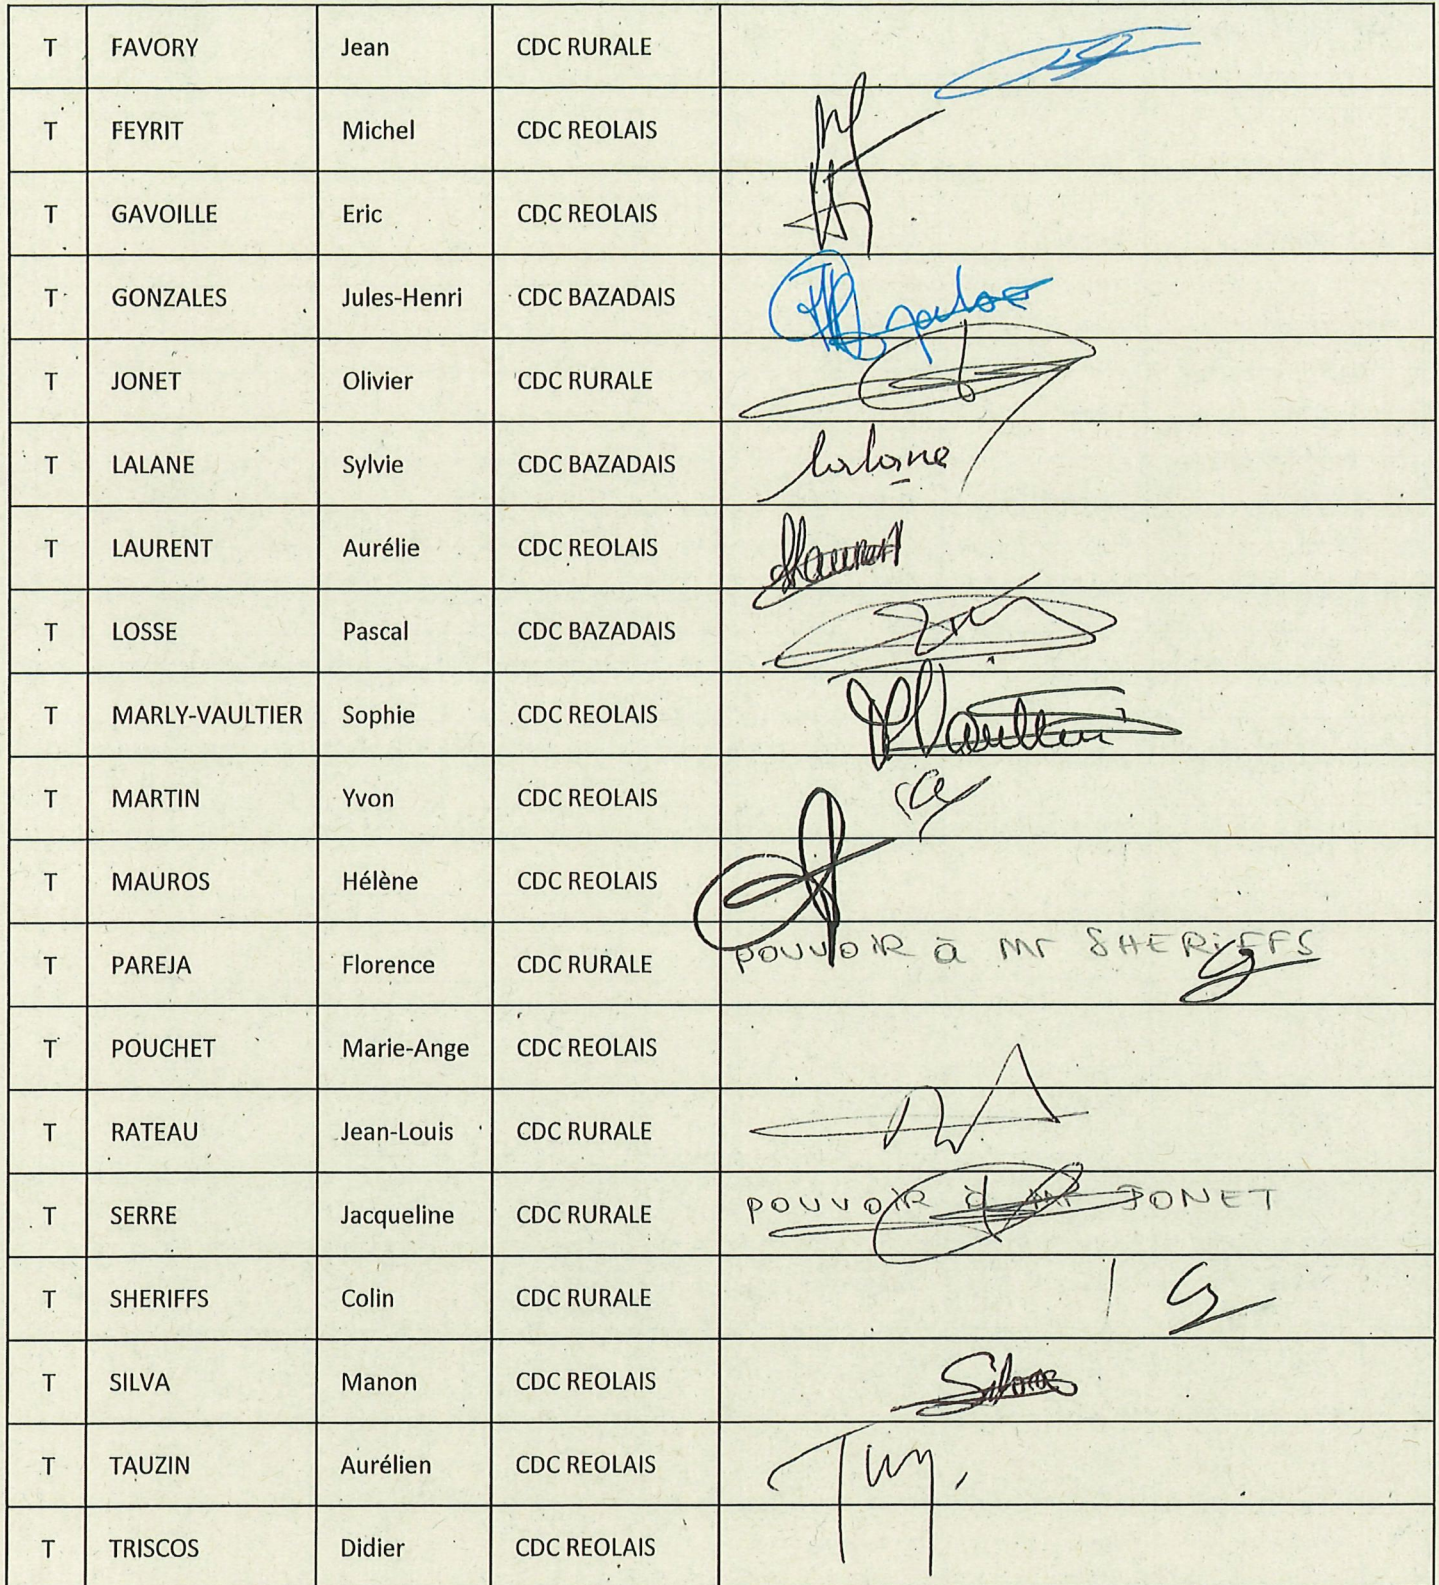 T FAVORY Jean CDC RURALE
T FEYRIT Michel CDC REOLAIS
T GAVOILLE Eric CDC REOLAIS
T GONZALES Jules-Henri CDC BAZADAIS
T JONET Olivier CDC RURALE
T LALANE Sylvie CDC BAZADAIS lalane
T LAURENT Aurélie CDC REOLAIS
T LOSSE Pascal CDC BAZADAIS
T MARLY-VAULTIER Sophie CDC REOLAIS
T MARTIN Yvon CDC REOLAIS
T MAUROS Hélène CDC REOLAIS
T PAREJA Florence CDC RURALE POUVOIR à Mr SHERIFFS
T POUCHET Marie-Ange CDC REOLAIS
T RATEAU Jean-Louis CDC RURALE
T SERRE Jacqueline CDC RURALE POUVOIR à Mr JONET
T SHERIFFS Colin CDC RURALE
T SILVA Manon CDC REOLAIS
T TAUZIN Aurélien CDC REOLAIS
T TRISCOS Didier CDC REOLAIS